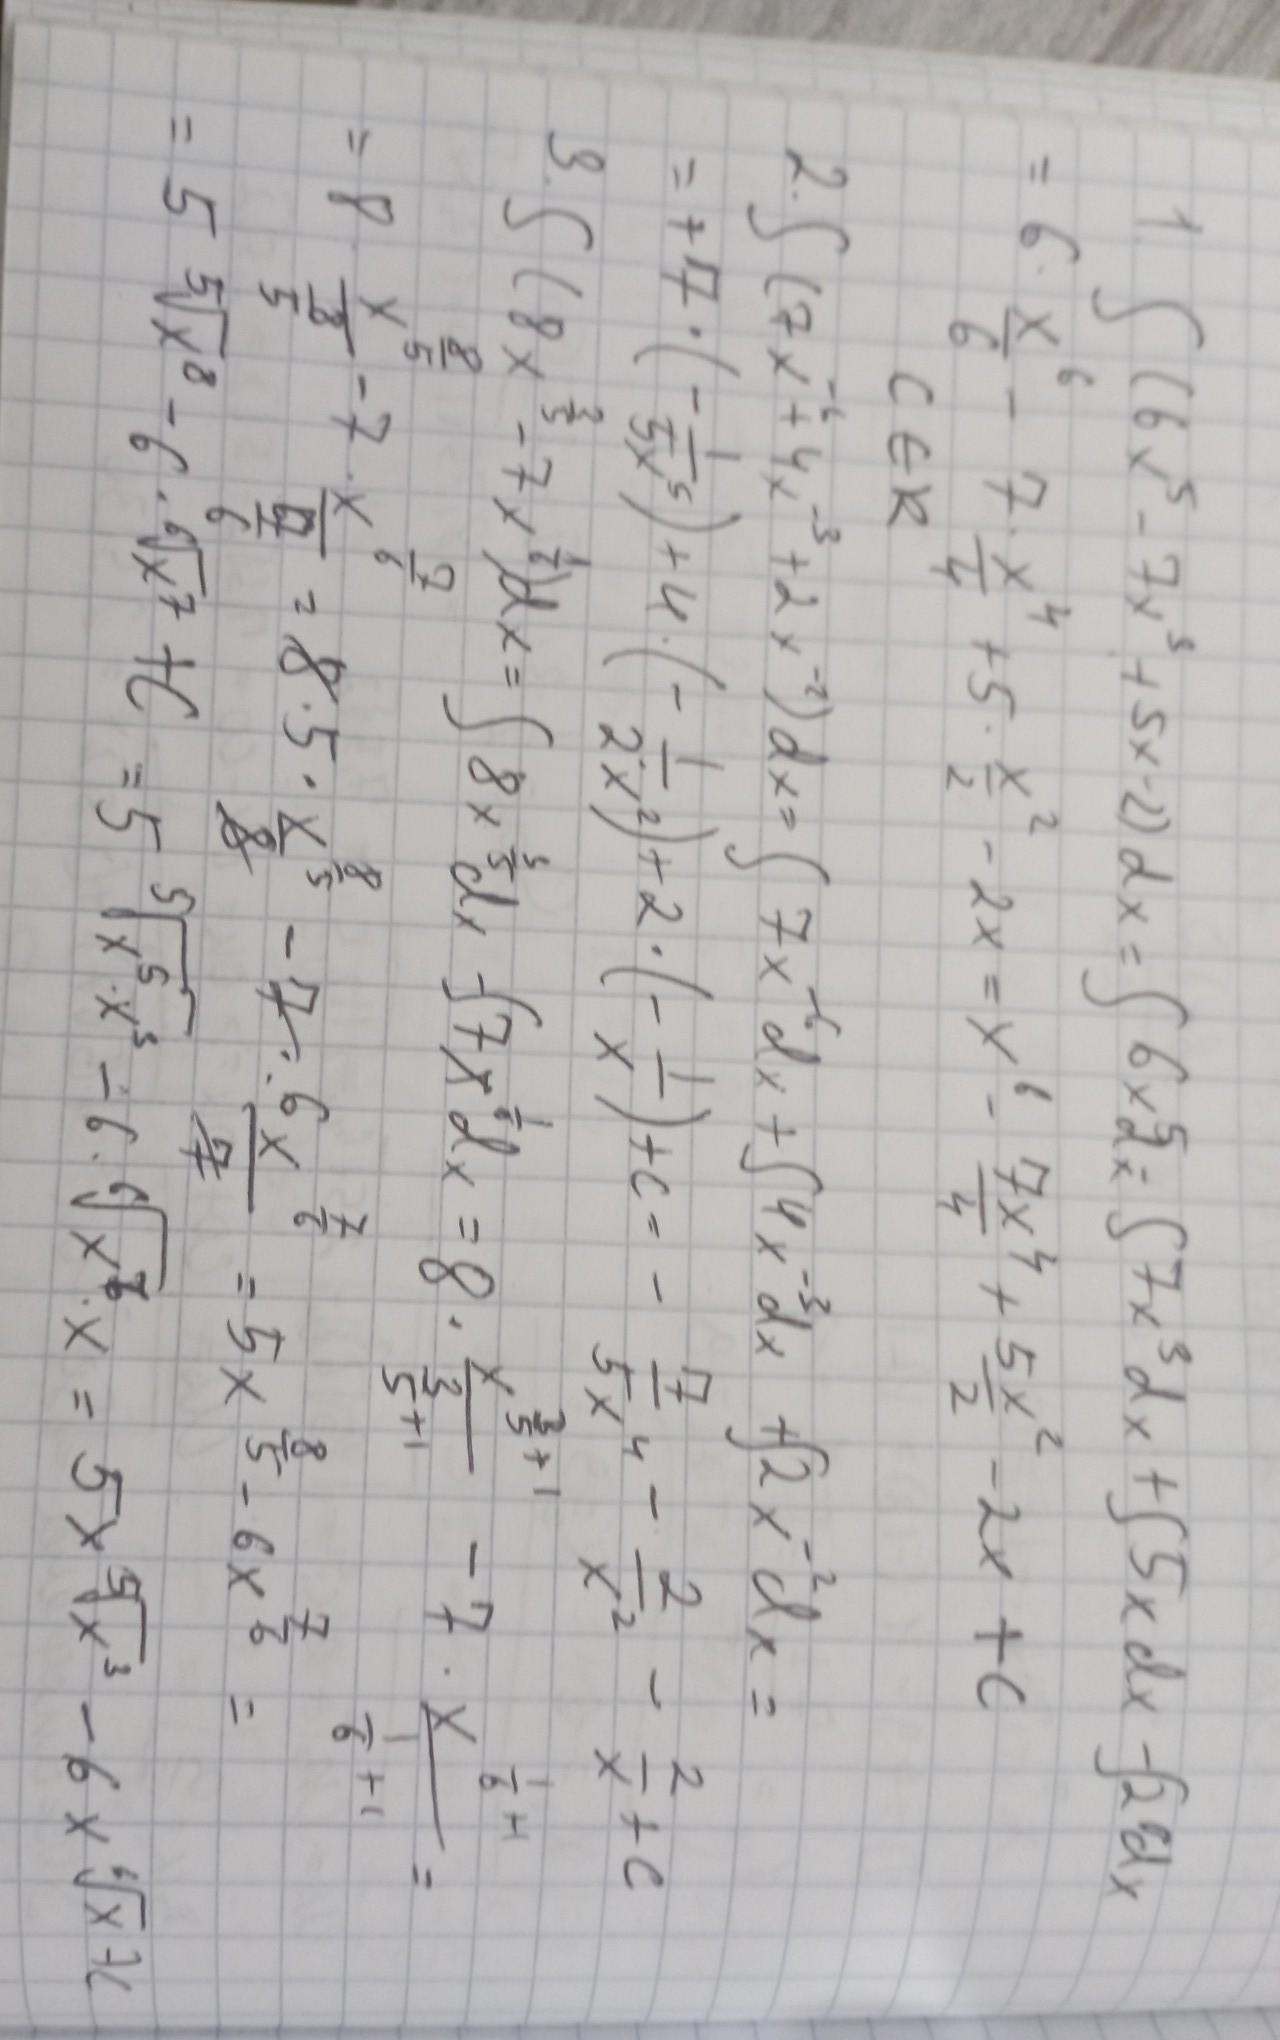 1. ∫(6x⁵ - 7x³ + 5x - 2) dx = ∫ 6x⁵dx = ∫ 7x³ dx + ∫ 5x dx - ∫2dx
= 6 · x⁶/6 - 7 · x⁴/4 + 5 · x²/2 - 2x = x⁶ - 7x⁴/4 + 5x²/2 - 2x + C
C ∈ R
2. ∫(7x⁻⁶ + 4x⁻³ + 2x⁻²) dx = ∫ 7x⁻⁶dx + ∫4x⁻³dx + ∫2x⁻²dx =
= + 7 · (- 1/5x⁵) + 4 · (- 1/2x²) + 2 · (- 1/x) + C = - 7/5x⁴ - 2/x² - 2/x + C
3. ∫(8x^(3/5) - 7x^(1/6))dx = ∫ 8x^(3/5)dx - ∫7x^(1/6)dx = 8 · x^(3/5+1)/(3/5+1) - 7 · x^(1/6+1)/(1/6+1) =
= 8 · x^(8/5)/(8/5) - 7 · x^(7/6)/(7/6) = 8 · 5 · x^(8/5)/8 - 7 · 6x^(7/6)/7 = 5x^(8/5) - 6x^(7/6) =
= 5 ⁵√x⁸ - 6 · ⁶√x⁷ + C = 5 ⁵√x⁵·x³ - 6 · ⁶√x⁶·x = 5x ⁵√x³ - 6x ⁶√x + C